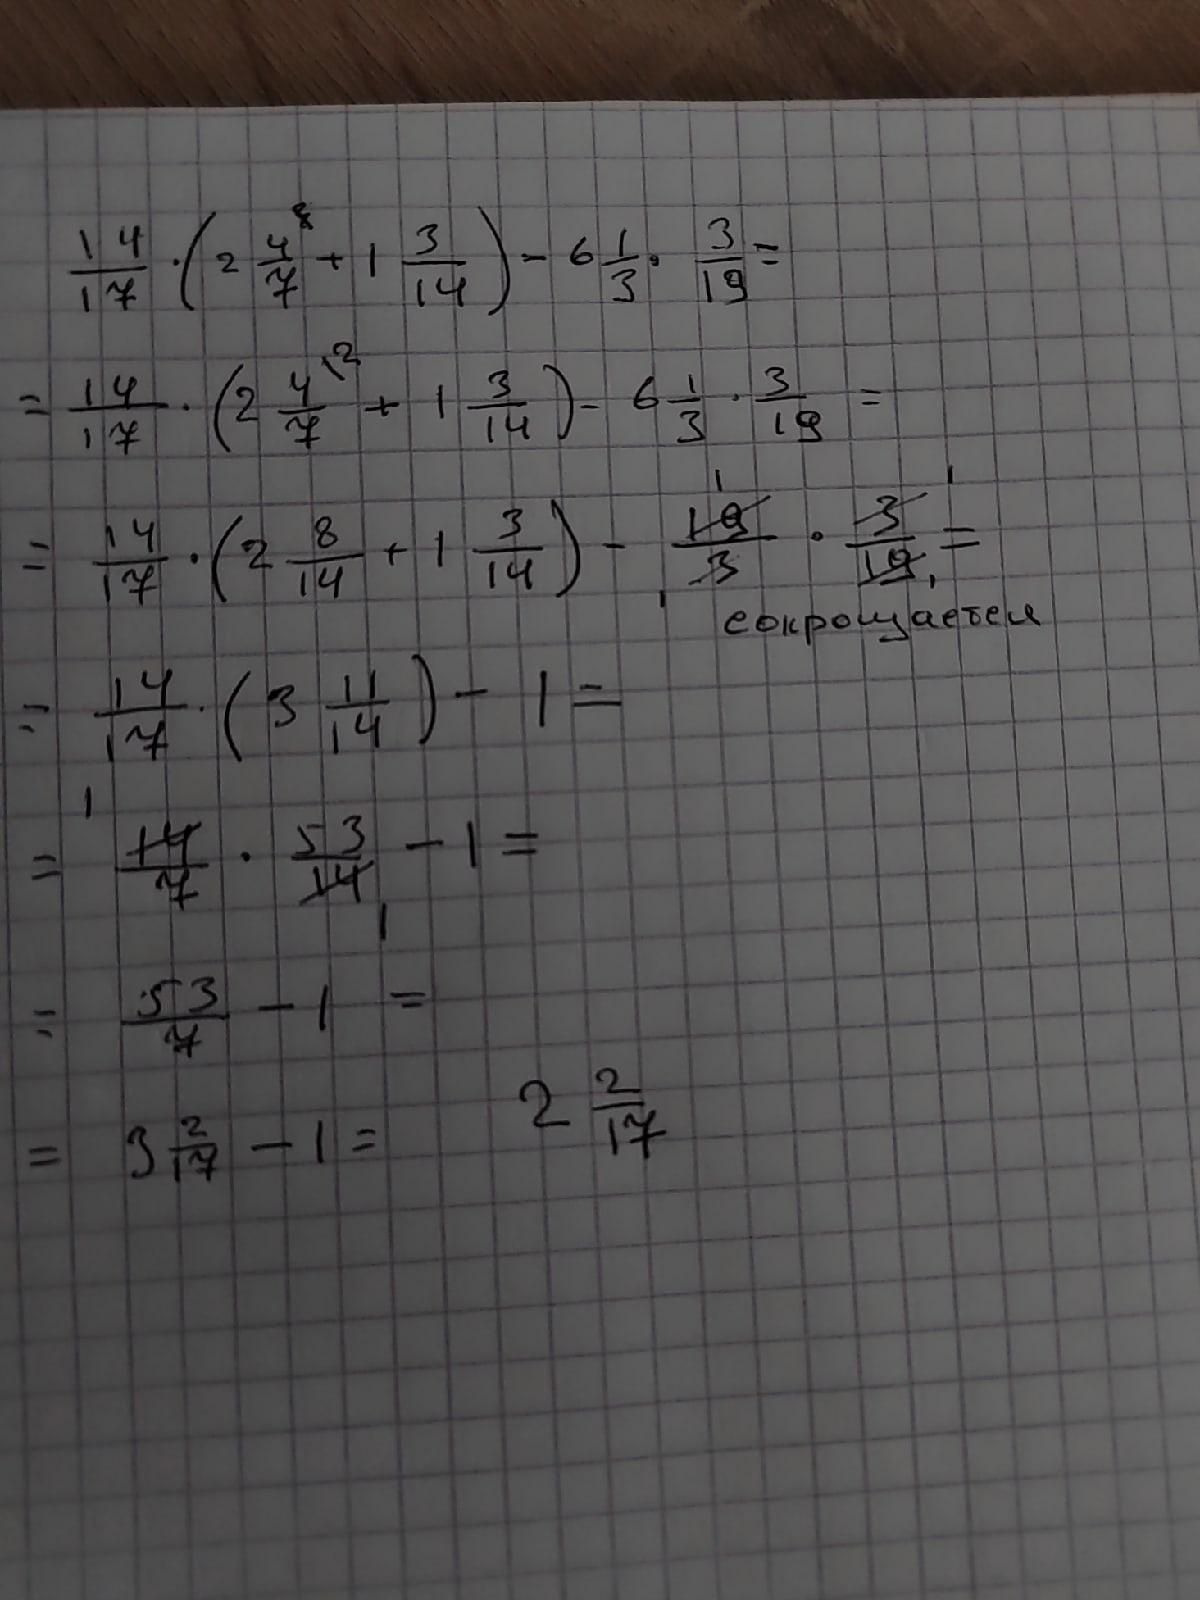 14/17 · (2 4/7 ⁸ + 1 3/14) - 6 1/3 · 3/19 =
= 14/17 · (2 4/7 \2 + 1 3/14) - 6 1/3 · 3/19 =
= 14/17 · (2 8/14 + 1 3/14) - 19/3 · 3/19 =
1 1 1 1
сокращается
= 14/17 · (3 11/14) - 1 =
= 14/7 · 53/14 - 1 =
1 1
= 53/7 - 1 =
= 3 2/17 - 1 = 2 2/17